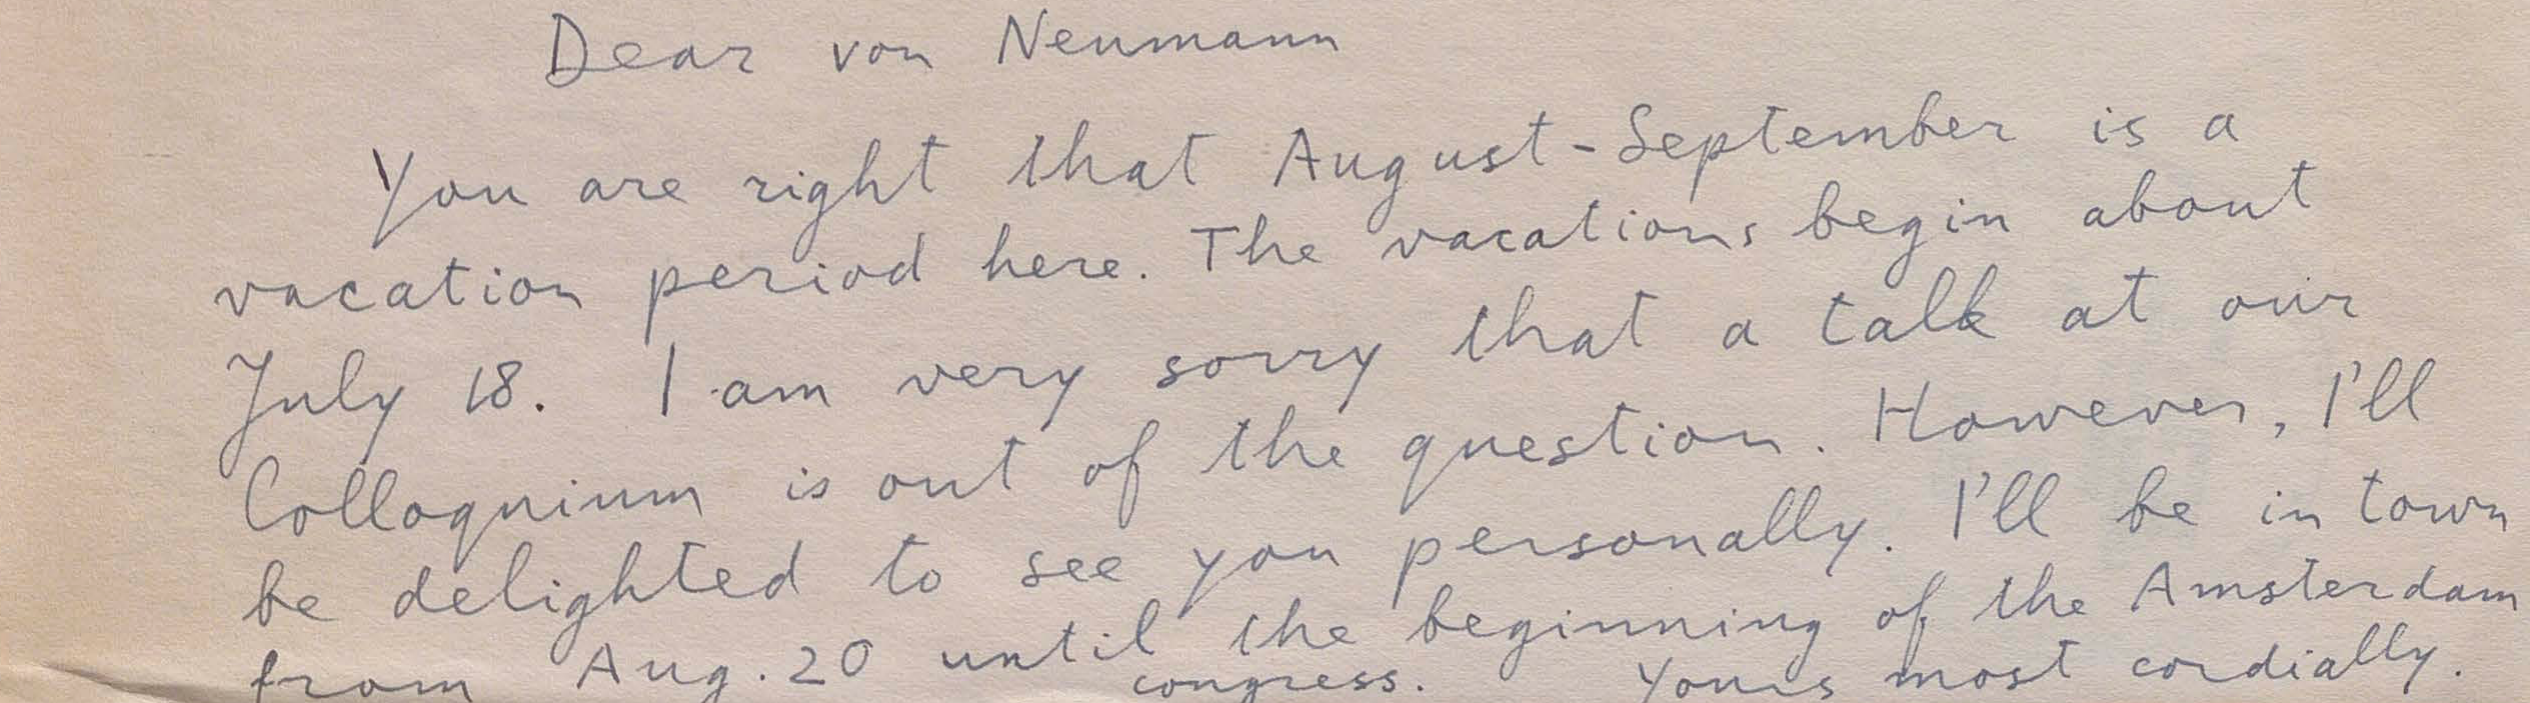 Dear von Neumann
You are right that August-September is a
vacation period here. The vacations begin about
July 18. I am very sorry that a talk at our
Colloquium is out of the question. However, I'll
be delighted to see you personally. I'll be in town
from Aug. 20 until the beginning of the Amsterdam
congress. Yours most cordially.